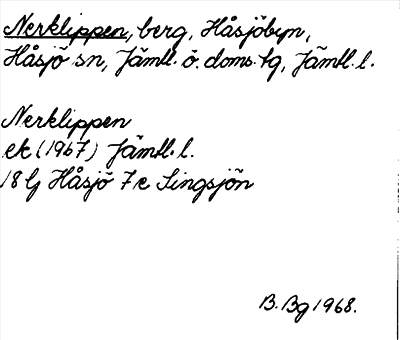 Nerklippen, berg, Håsjöbyn,
Håsjö sn, Jämtl. ö. doms. tg, Jämtl. l.
Nerklippen
ek (1967) Jämtl. l.
18 G Håsjö 7 e Singsjön
B. Bg 1968.